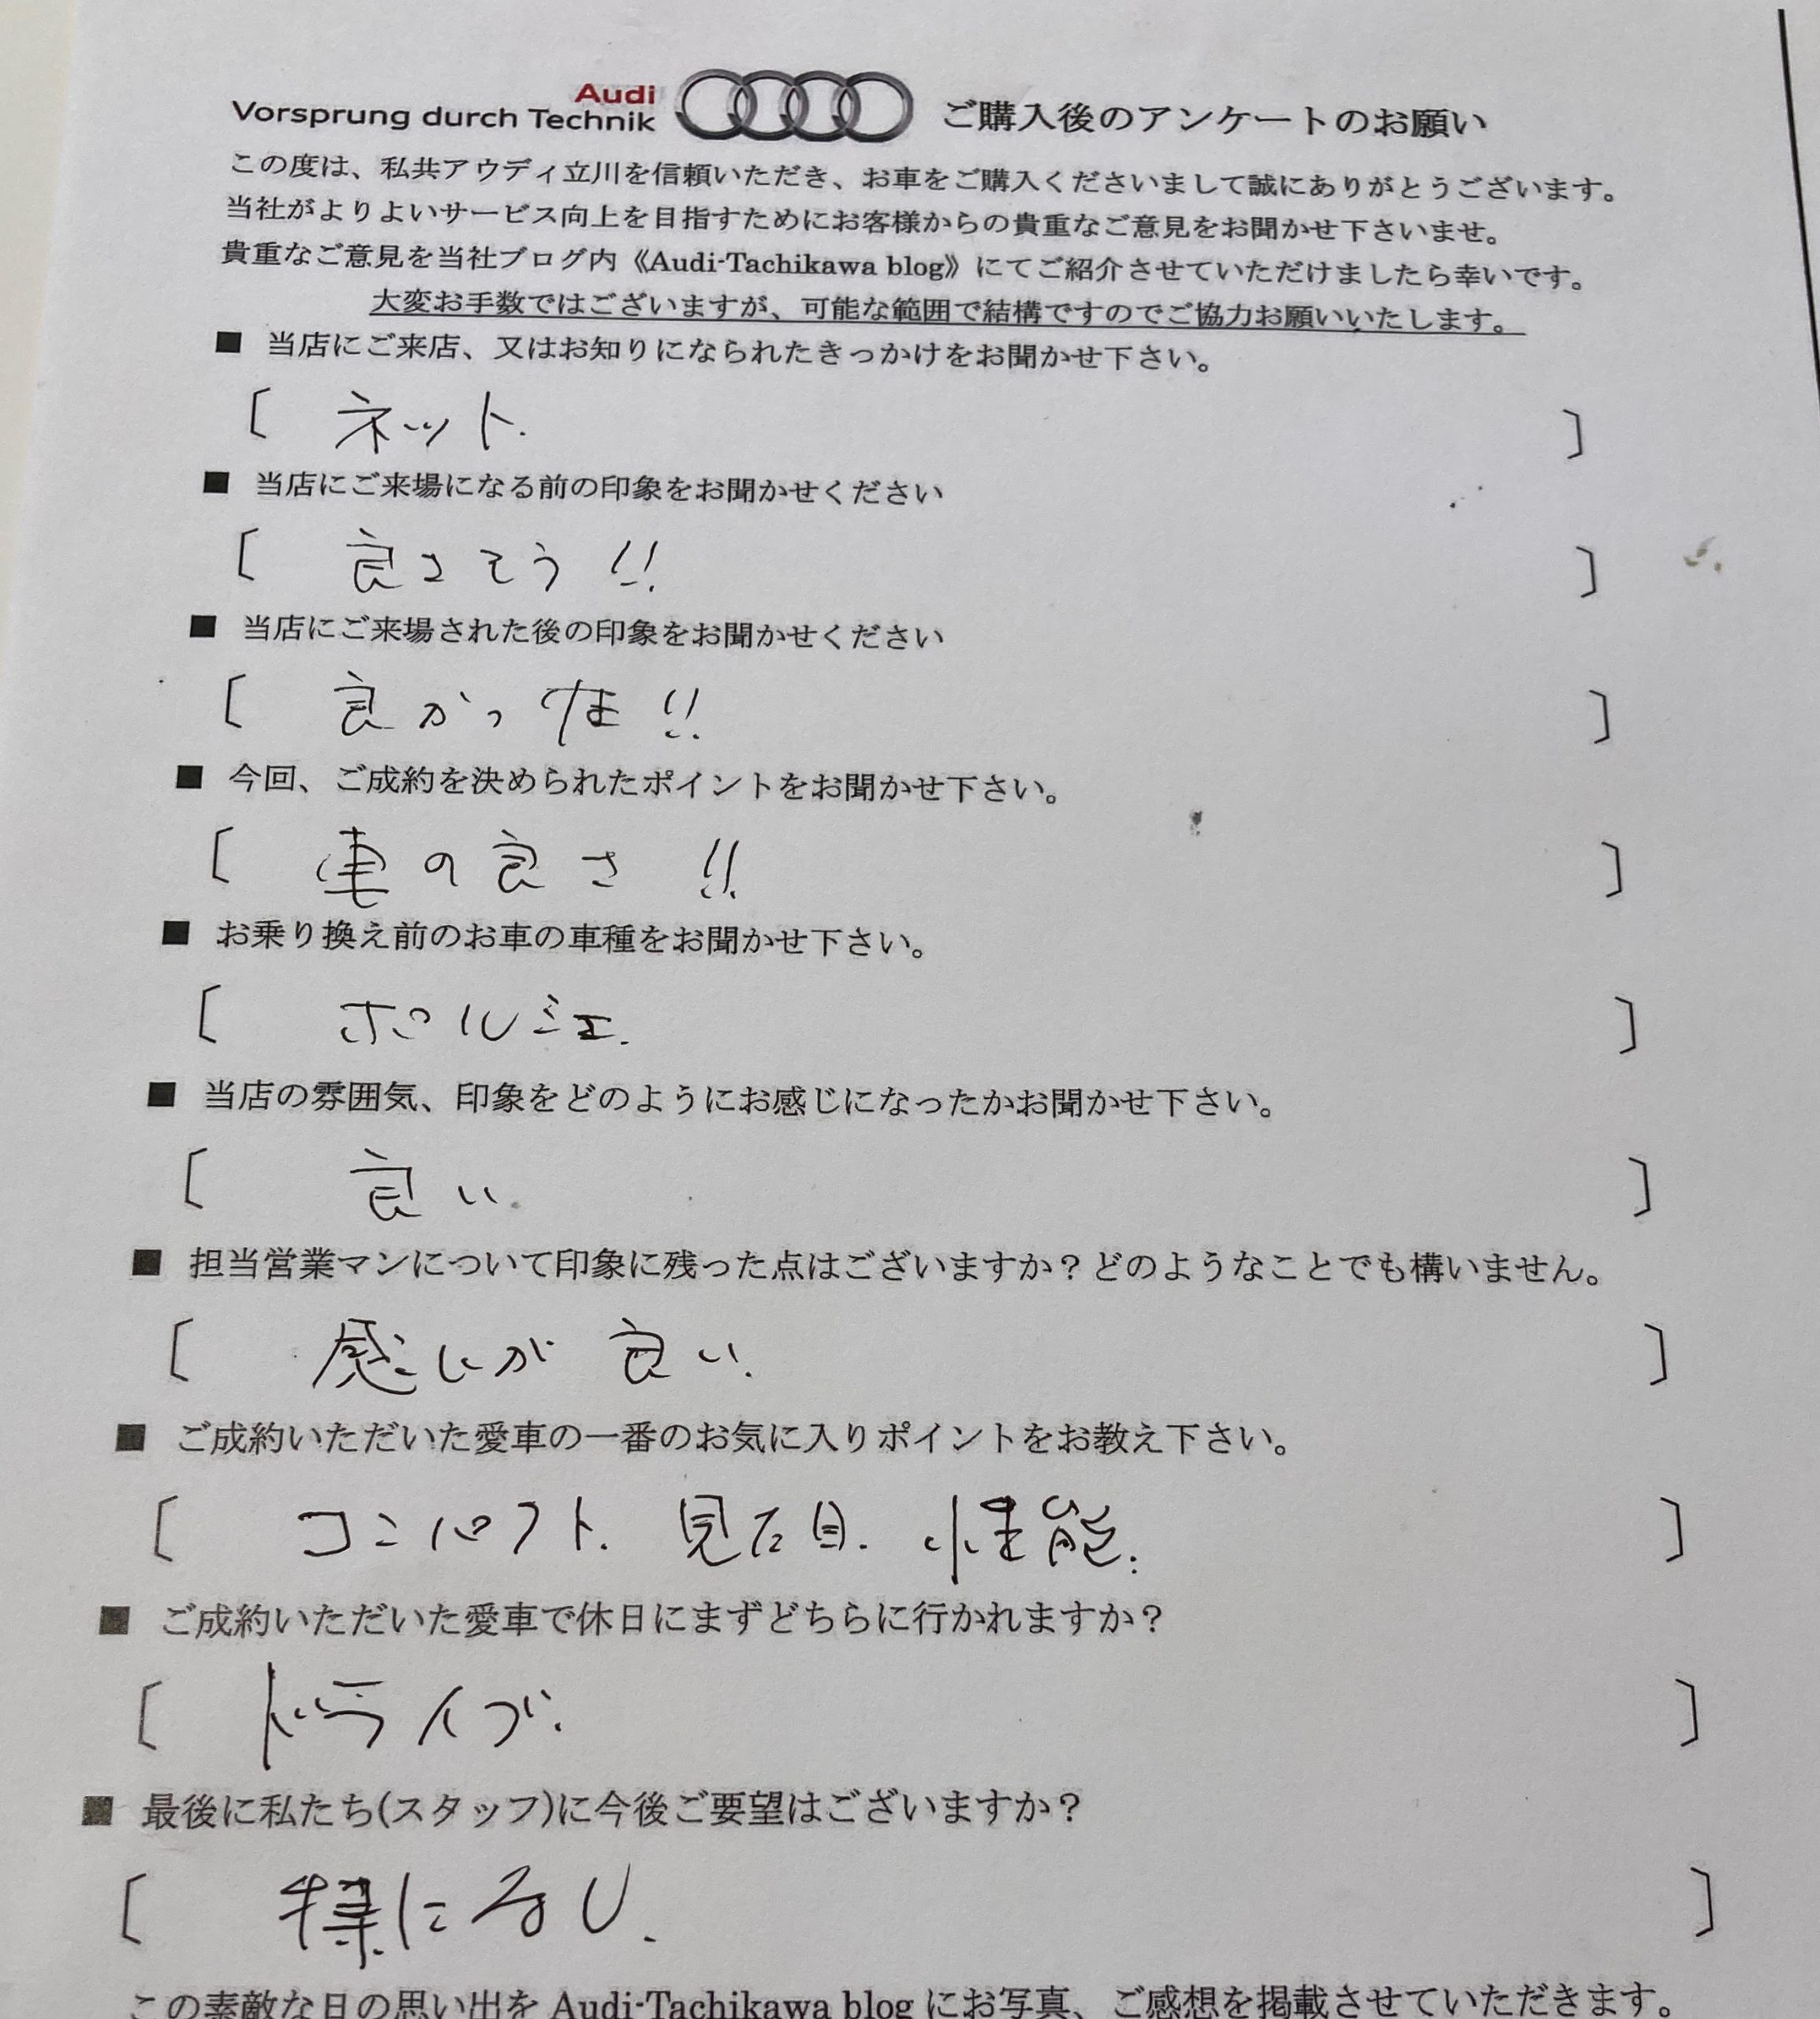 Audi
Vorsprung durch Technik
ご購入後のアンケートのお願い
この度は、私共アウディ立川を信頼いただき、お車をご購入くださいまして誠にありがとうございます。
当社がよりよいサービス向上を目指すためにお客様からの貴重なご意見をお聞かせ下さいませ。
貴重なご意見を当社ブログ内《Audi-Tachikawa blog》にてご紹介させていただけましたら幸いです。
大変お手数ではございますが、可能な範囲で結構ですのでご協力お願いいたします。
■ 当店にご来店、又はお知りになられたきっかけをお聞かせ下さい。
〔 ネット. 〕
■ 当店にご来場になる前の印象をお聞かせください
〔 良さそう!! 〕
■ 当店にご来場された後の印象をお聞かせください
〔 良かった!! 〕
■ 今回、ご成約を決められたポイントをお聞かせ下さい。
〔 車の良さ!! 〕
■ お乗り換え前のお車の車種をお聞かせ下さい。
〔 ポルシェ. 〕
■ 当店の雰囲気、印象をどのようにお感じになったかお聞かせ下さい。
〔 良い. 〕
■ 担当営業マンについて印象に残った点はございますか？どのようなことでも構いません。
〔 感じが良い. 〕
■ ご成約いただいた愛車の一番のお気に入りポイントをお教え下さい。
〔 コンパクト. 見た目. 性能. 〕
■ ご成約いただいた愛車で休日にまずどちらに行かれますか？
〔 ドライブ. 〕
■ 最後に私たち(スタッフ)に今後ご要望はございますか？
〔 特になし. 〕
この素敵な日の思い出を Audi-Tachikawa blog にお写真、ご感想を掲載させていただきます。